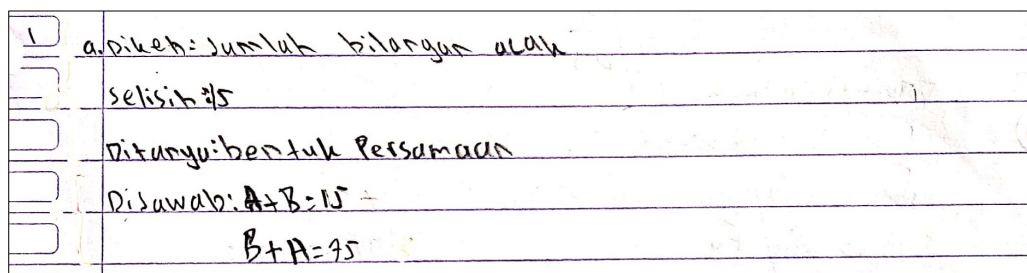 1 a. Diket: Jumlah bilangan acak
Selisih: 15
Ditanya: bentuk Persamaan
Dijawab: A+B=15
B+A=75